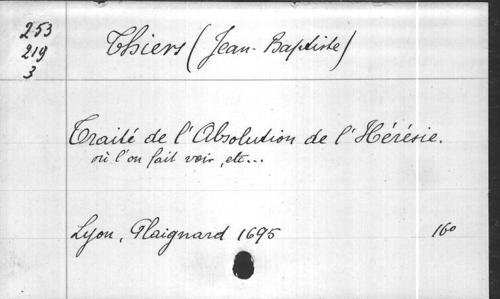 253
219
3
Thiers (Jean-Baptiste)
Traité de l'Absolution de l'Hérésie.
où l'on fait voir, etc...
Lyon, Plaignard 1695 16°